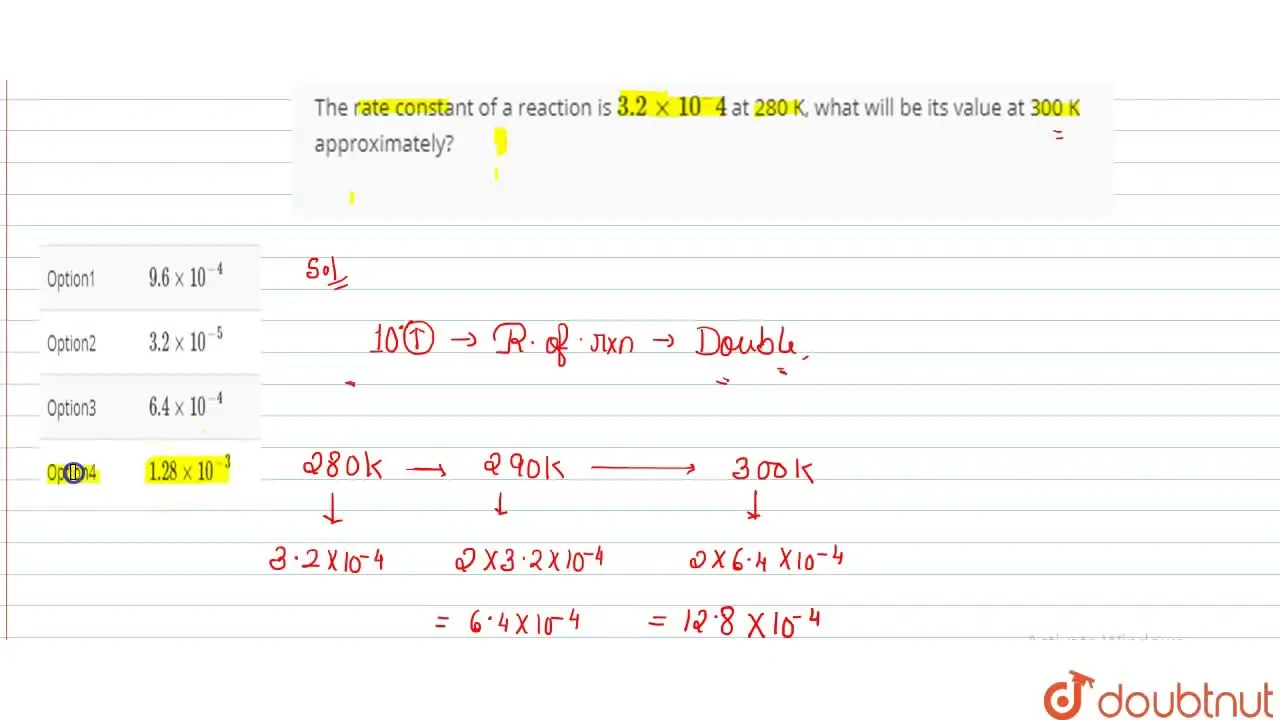 The rate constant of a reaction is 3.2 × 10⁻4 at 280 K, what will be its value at 300 K
approximately?
Option1 9.6 × 10⁻⁴
Option2 3.2 × 10⁻⁵
Option3 6.4 × 10⁻⁴
Option4 1.28 × 10⁻³
Sol
10° ↑ → R. of. rxn → Double,
280K → 290K → 300K
↓ ↓ ↓
3.2×10⁻⁴ 2×3.2×10⁻⁴ 2×6.4×10⁻⁴
= 6.4×10⁻⁴ = 12.8×10⁻⁴
doubtnut